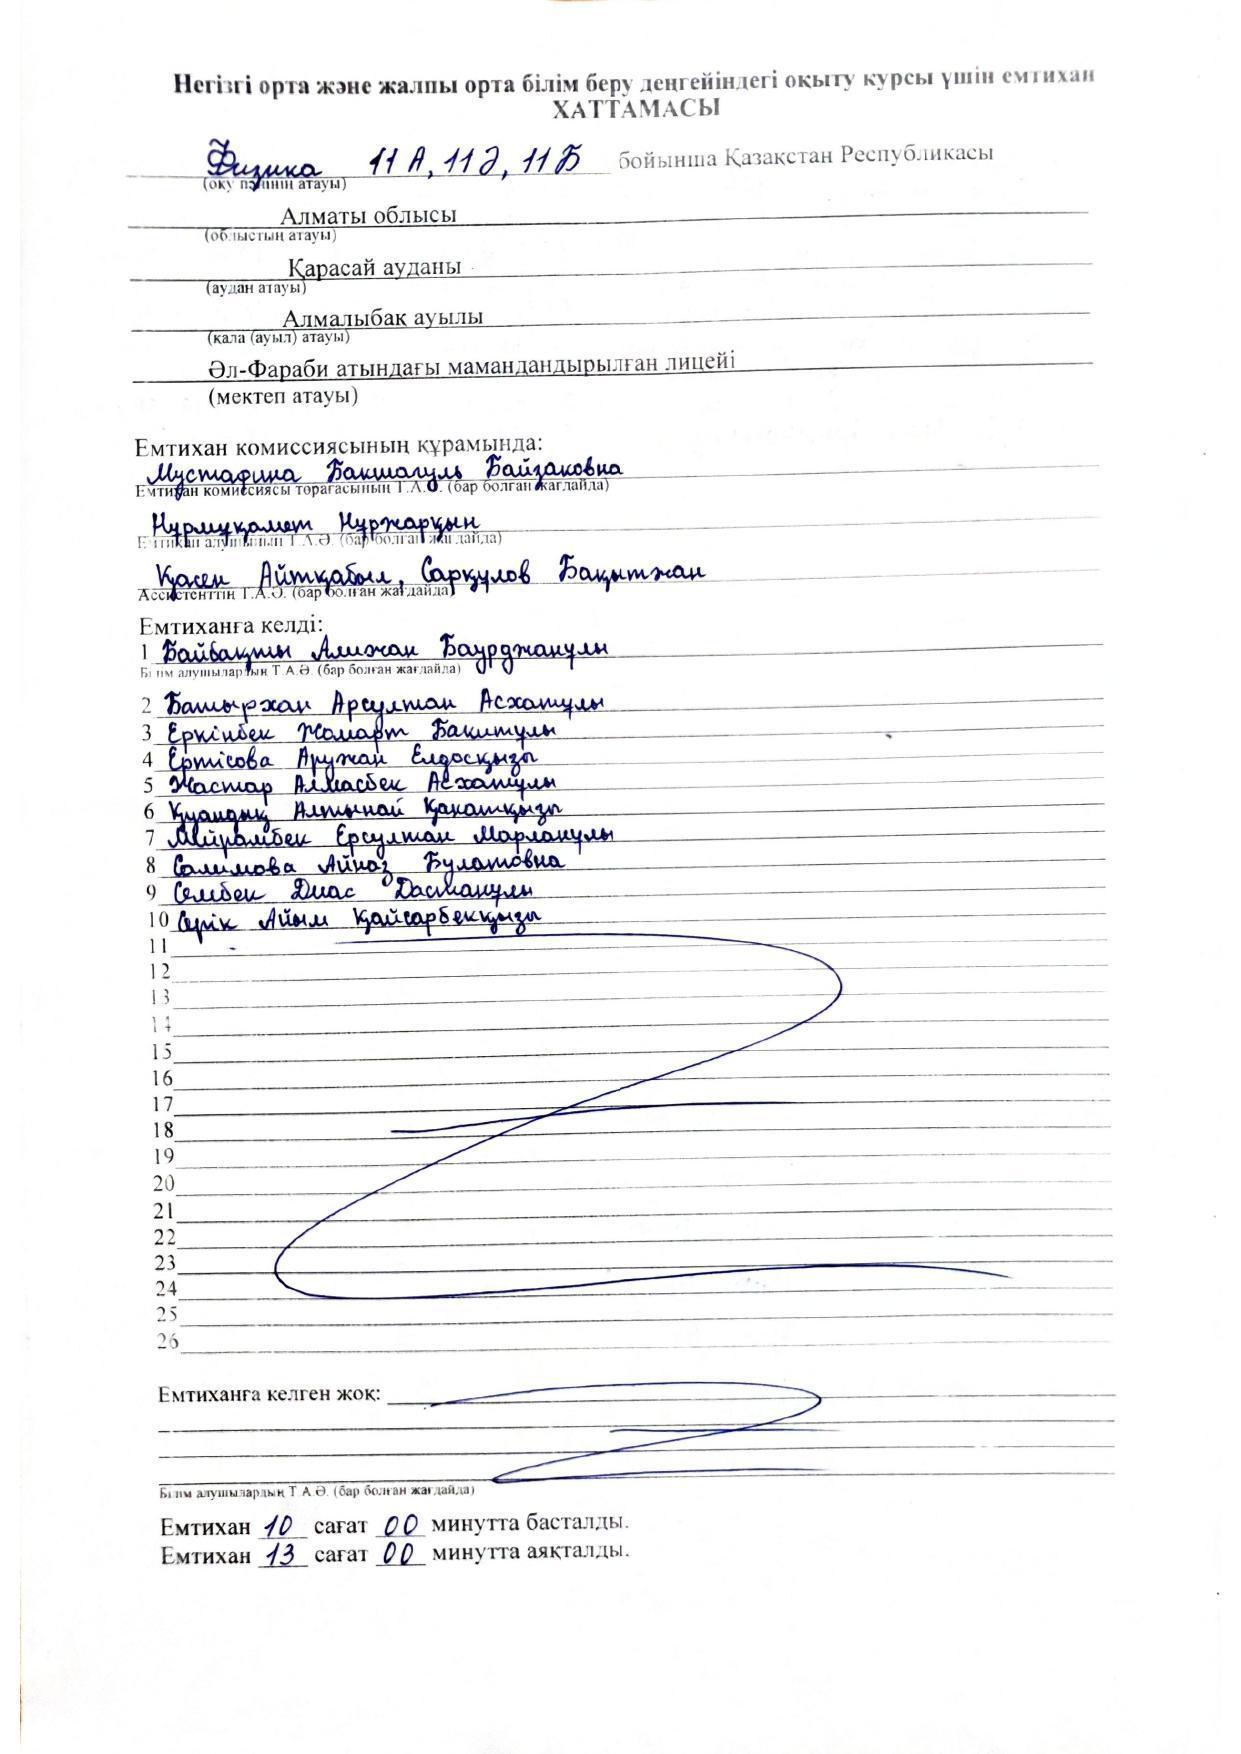 Негізгі орта және жалпы орта білім беру деңгейіндегі оқыту курсы үшін емтихан
ХАТТАМАСЫ
Физика 11 А, 11 Ә, 11 Б бойынша Қазақстан Республикасы
(оқу пәнінің атауы)
Алматы облысы
(облыстың атауы)
Қарасай ауданы
(аудан атауы)
Алмалыбақ ауылы
(қала (ауыл) атауы)
Әл-Фараби атындағы мамандандырылған лицейі
(мектеп атауы)
Емтихан комиссиясының құрамында:
Мустафина Бакшагуль Байзаковна
Емтихан комиссиясы торағасының Т.А.Ә. (бар болған жағдайда)
Нұрмұқамет Нұржарқын
Емтихан алушының Т.А.Ә. (бар болған жағдайда)
Қасен Айтқабыл, Сарқұлов Бақытжан
Ассистенттің Т.А.Ә. (бар болған жағдайда)
Емтиханға келді:
1 Байбақты Алижан Баурджанұлы
Білім алушылардың Т.А.Ә. (бар болған жағдайда)
2 Батырхан Арсултан Асхатұлы
3 Еркінбек Жомарт Бакитұлы
4 Ертісова Аружан Елдосқызы
5 Жастар Алмасбек Асхатұлы
6 Қуандық Алтынай Қанатқызы
7 Мейрамбек Ерсултан Марланұлы
8 Салимова Айназ Булатовна
9 Сембек Диас Дастанұлы
10 Серік Айым Қайсарбекқызы
11
12
13
14
15
16
17
18
19
20
21
22
23
24
25
26
Емтиханға келген жоқ:
Білім алушылардың Т.А.Ә. (бар болған жағдайда)
Емтихан 10 сағат 00 минутта басталды.
Емтихан 13 сағат 00 минутта аяқталды.